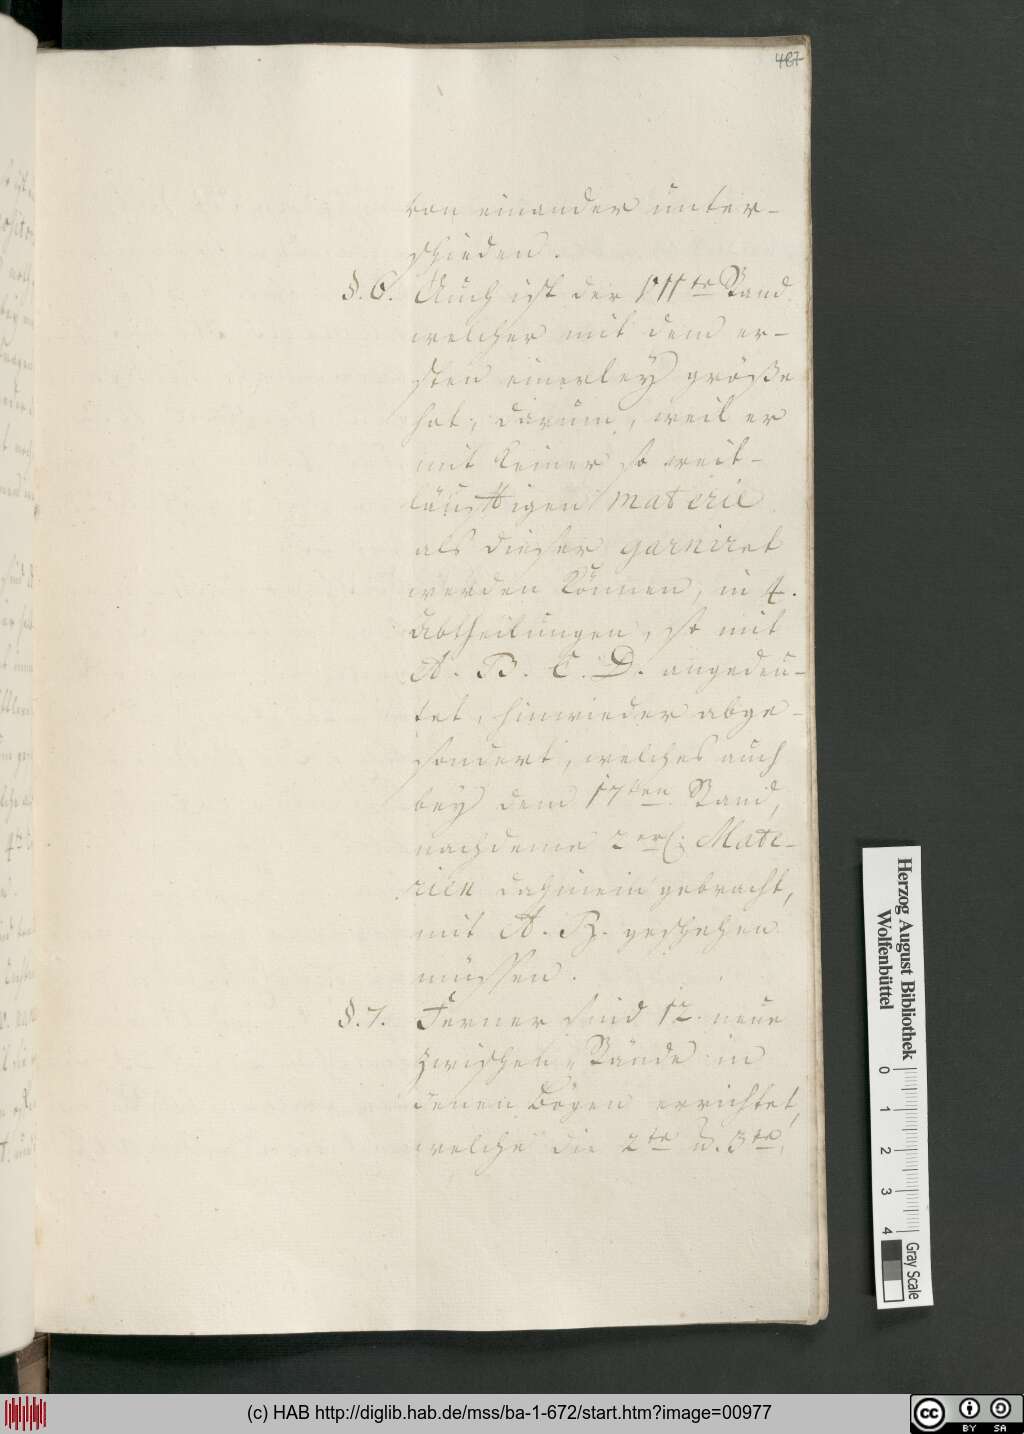 467
von einander unter-
schieden.
§. 6. Auch ist der 111te Stand
welcher mit dem er-
sten einerley größe
hat, darum, weil er
mit keiner so weit-
läufftigen Materie
als dieser garniret
werden können, in 4.
Abtheilungen, so mit
A. B. C. D. angedeu-
tet, hinwieder abge-
sondert, welches auch
bey dem 17ten Stand,
nachdeme 2erl: Mate-
rien dahinein gebracht,
mit A. B. geschehen
müssen.
§. 7. Ferner sind 12. neue
zwischen Stände in
denen Bögen errichtet,
welche die 2te u. 3te,
Herzog August Bibliothek
Wolfenbüttel
0 1 2 3 4
Gray Scale
(c) HAB http://diglib.hab.de/mss/ba-1-672/start.htm?image=00977
cc BY SA